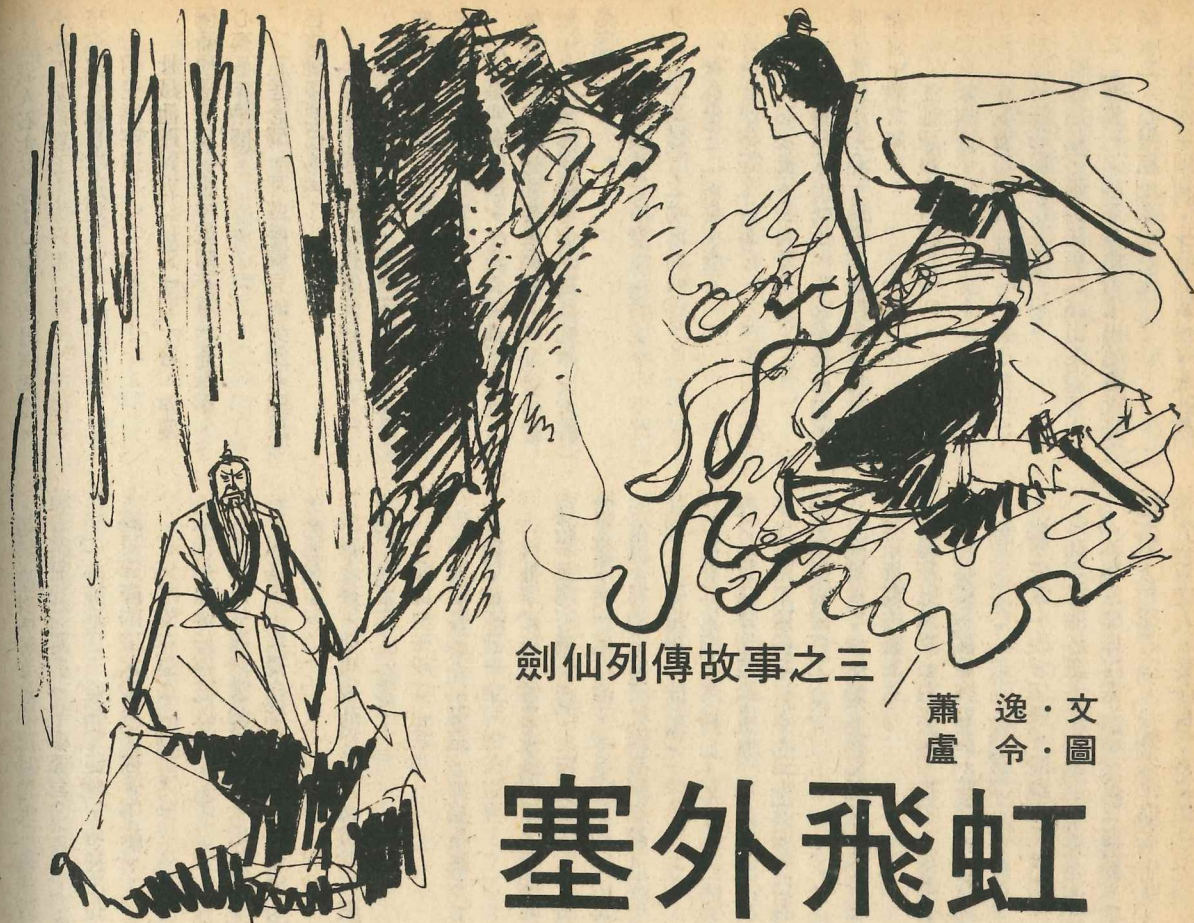 劍仙列傳故事之三
蕭　逸·文
盧　令·圖
塞外飛虹